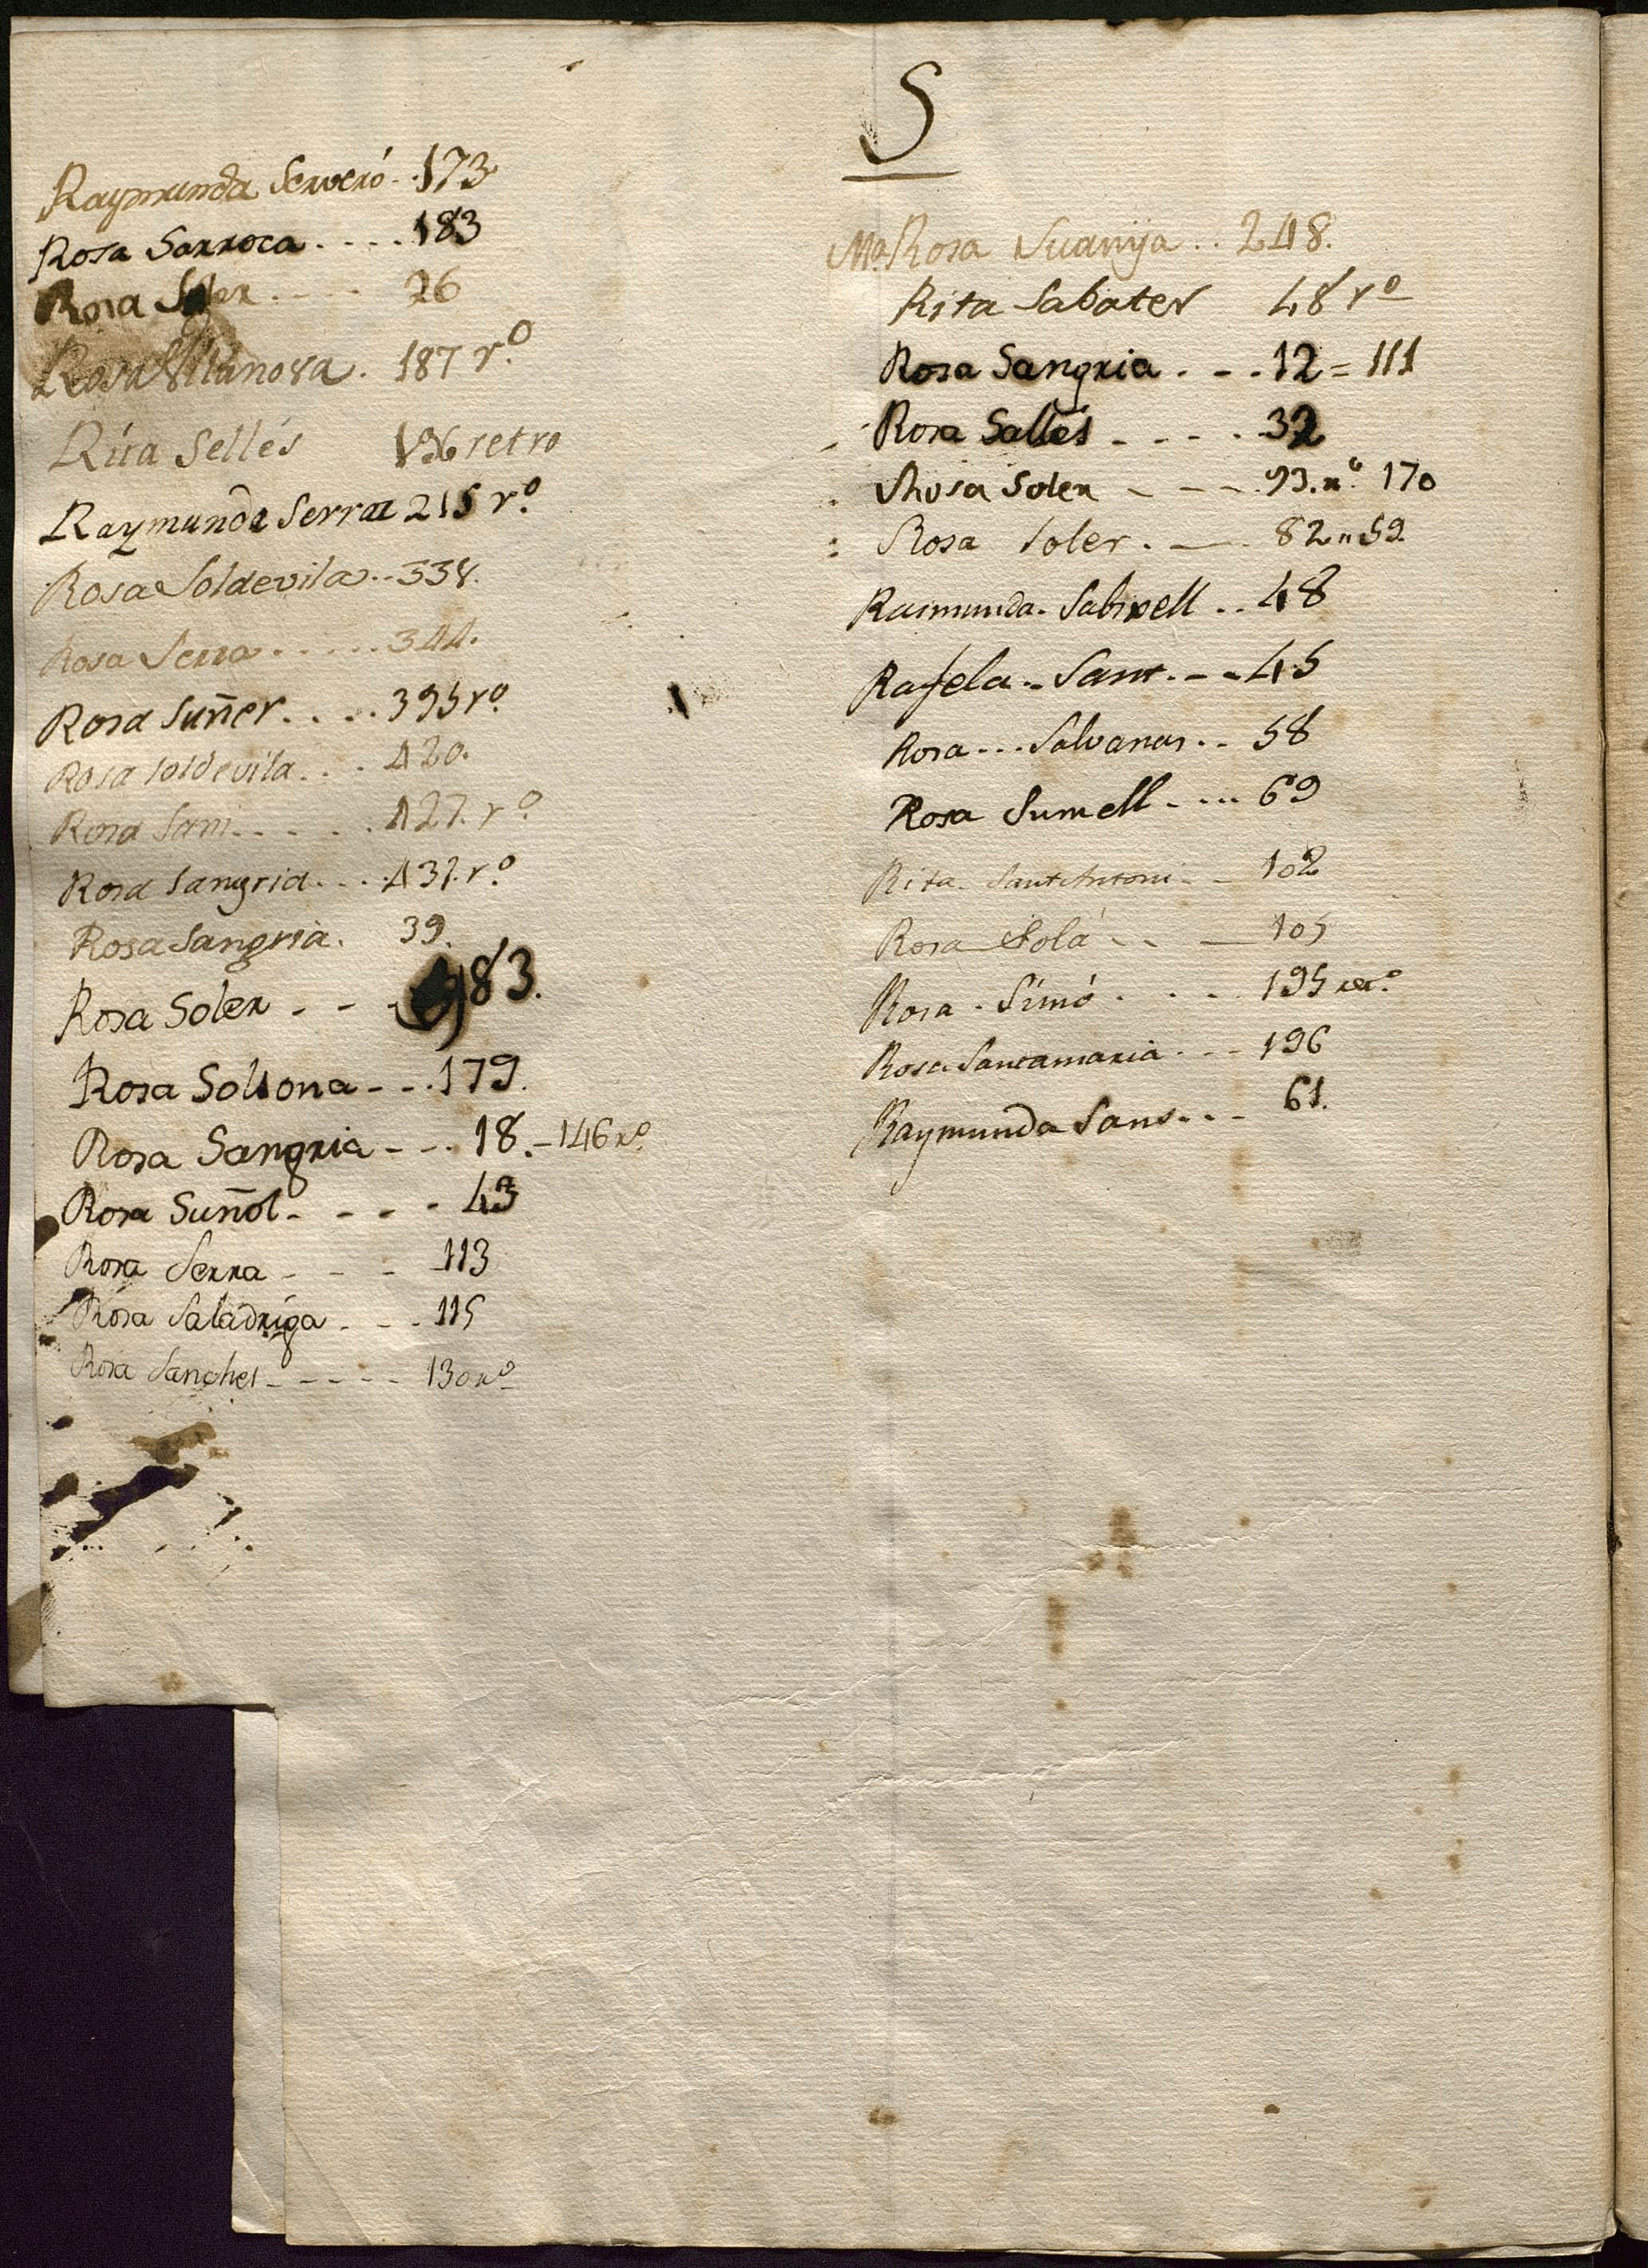 S
Raymunda Serveró . . 173
Rosa Sarroca . . . . 183
Rosa Soler . . . . 26
Rosa Vilanova . 187 rº
Rita Sellés retro
Raymunda Serrat 215 rº
Rosa Soldevila . . 338.
Rosa Serra . . . . . 344.
Rosa Suñer . . . . 395 rº
Rosa Soldevila . . . 420.
Rosa Sani . . . . . 427. rº
Rosa Sangria . . . . 437. rº
Rosa Sangria . 39.
Rosa Soler - - - 183.
Rosa Solsona - - . 179.
Rosa Sangria - - . 18. - 146 rº
Rosa Suñol - - - - 43
Rosa Serra - - - 113
Rosa Saladriga - - . 115
Rosa Sanches - - - - - 130 rº
Mª Rosa Suanya . . 248.
Rita Sabater 48 rº
Rosa Sangria . - . 12 = 111
Rosa Sallés - - - . 32
Rosa Soler - - - . 93. rº 170
Rosa Soler . - . 82 " 59.
Raimunda Sabrell . . 48
Rafela - Sant . - - 45
Rosa . . . Salvanas . . 58
Rosa Sumell - . . . 69
Rita SantAntoni - - 102
Rosa Solá - - - 105
Rosa - Simó . . - . 195 rº
Rosa Santamaria . - - 196
Raymunda Sans . . - 61.